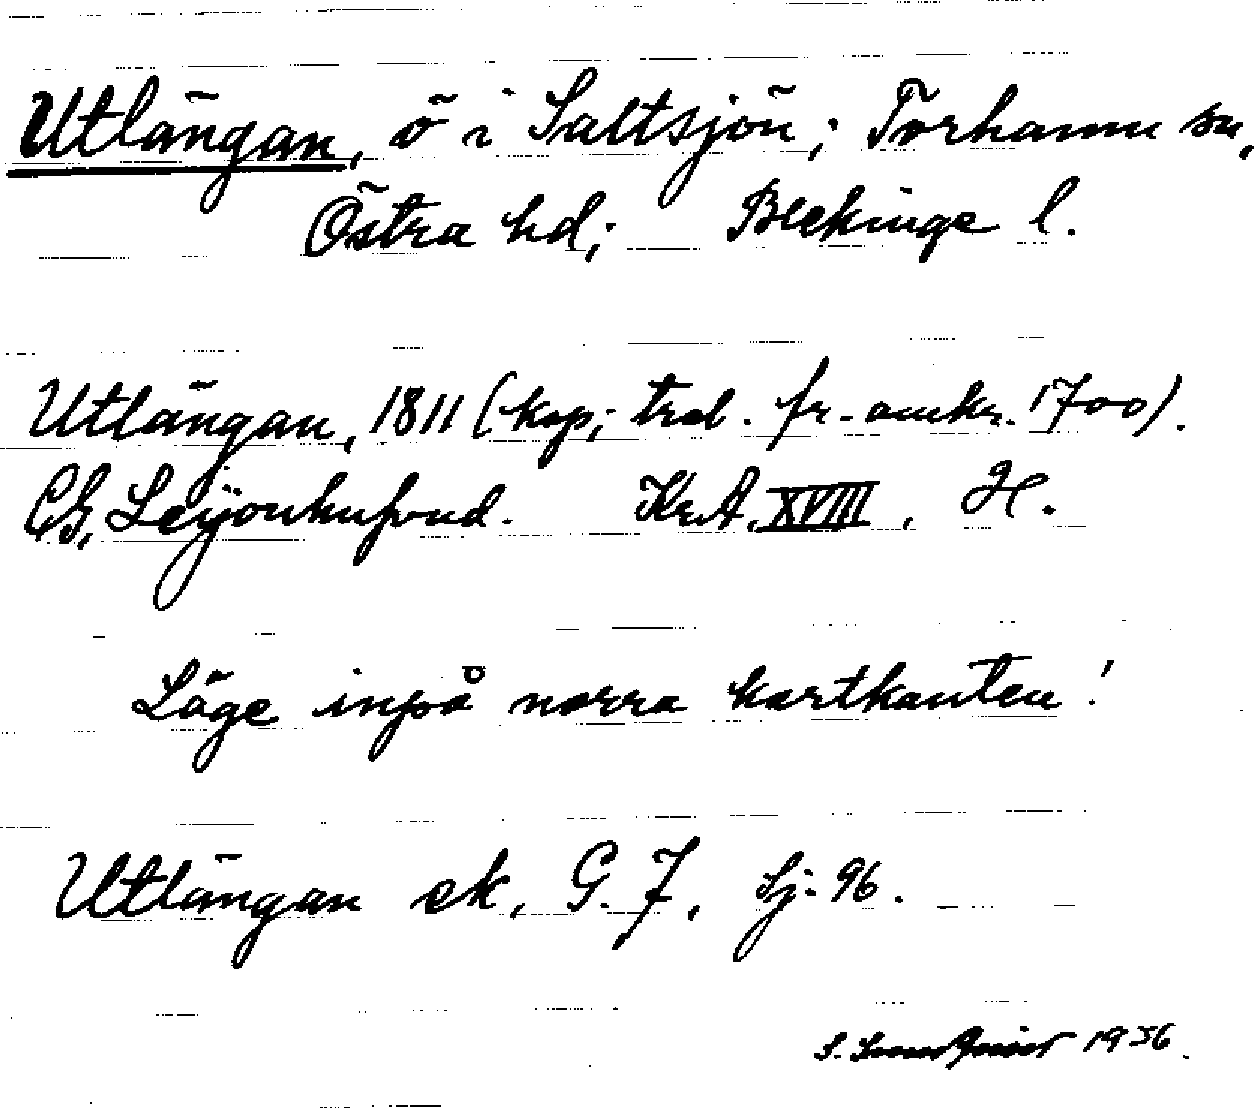 Utlängan, ö i Saltsjön; Torhamn sn,
Östra hd; Blekinge l.
Utlängan, 1811 (kop; trol. fr. omkr. 1700).
C.G. Leijonhufvud. Kr.A. XVIII, H.
Läge inpå norra kartkanten!
Utlängan ek, G. J, Sj. 96.
S. 1956.